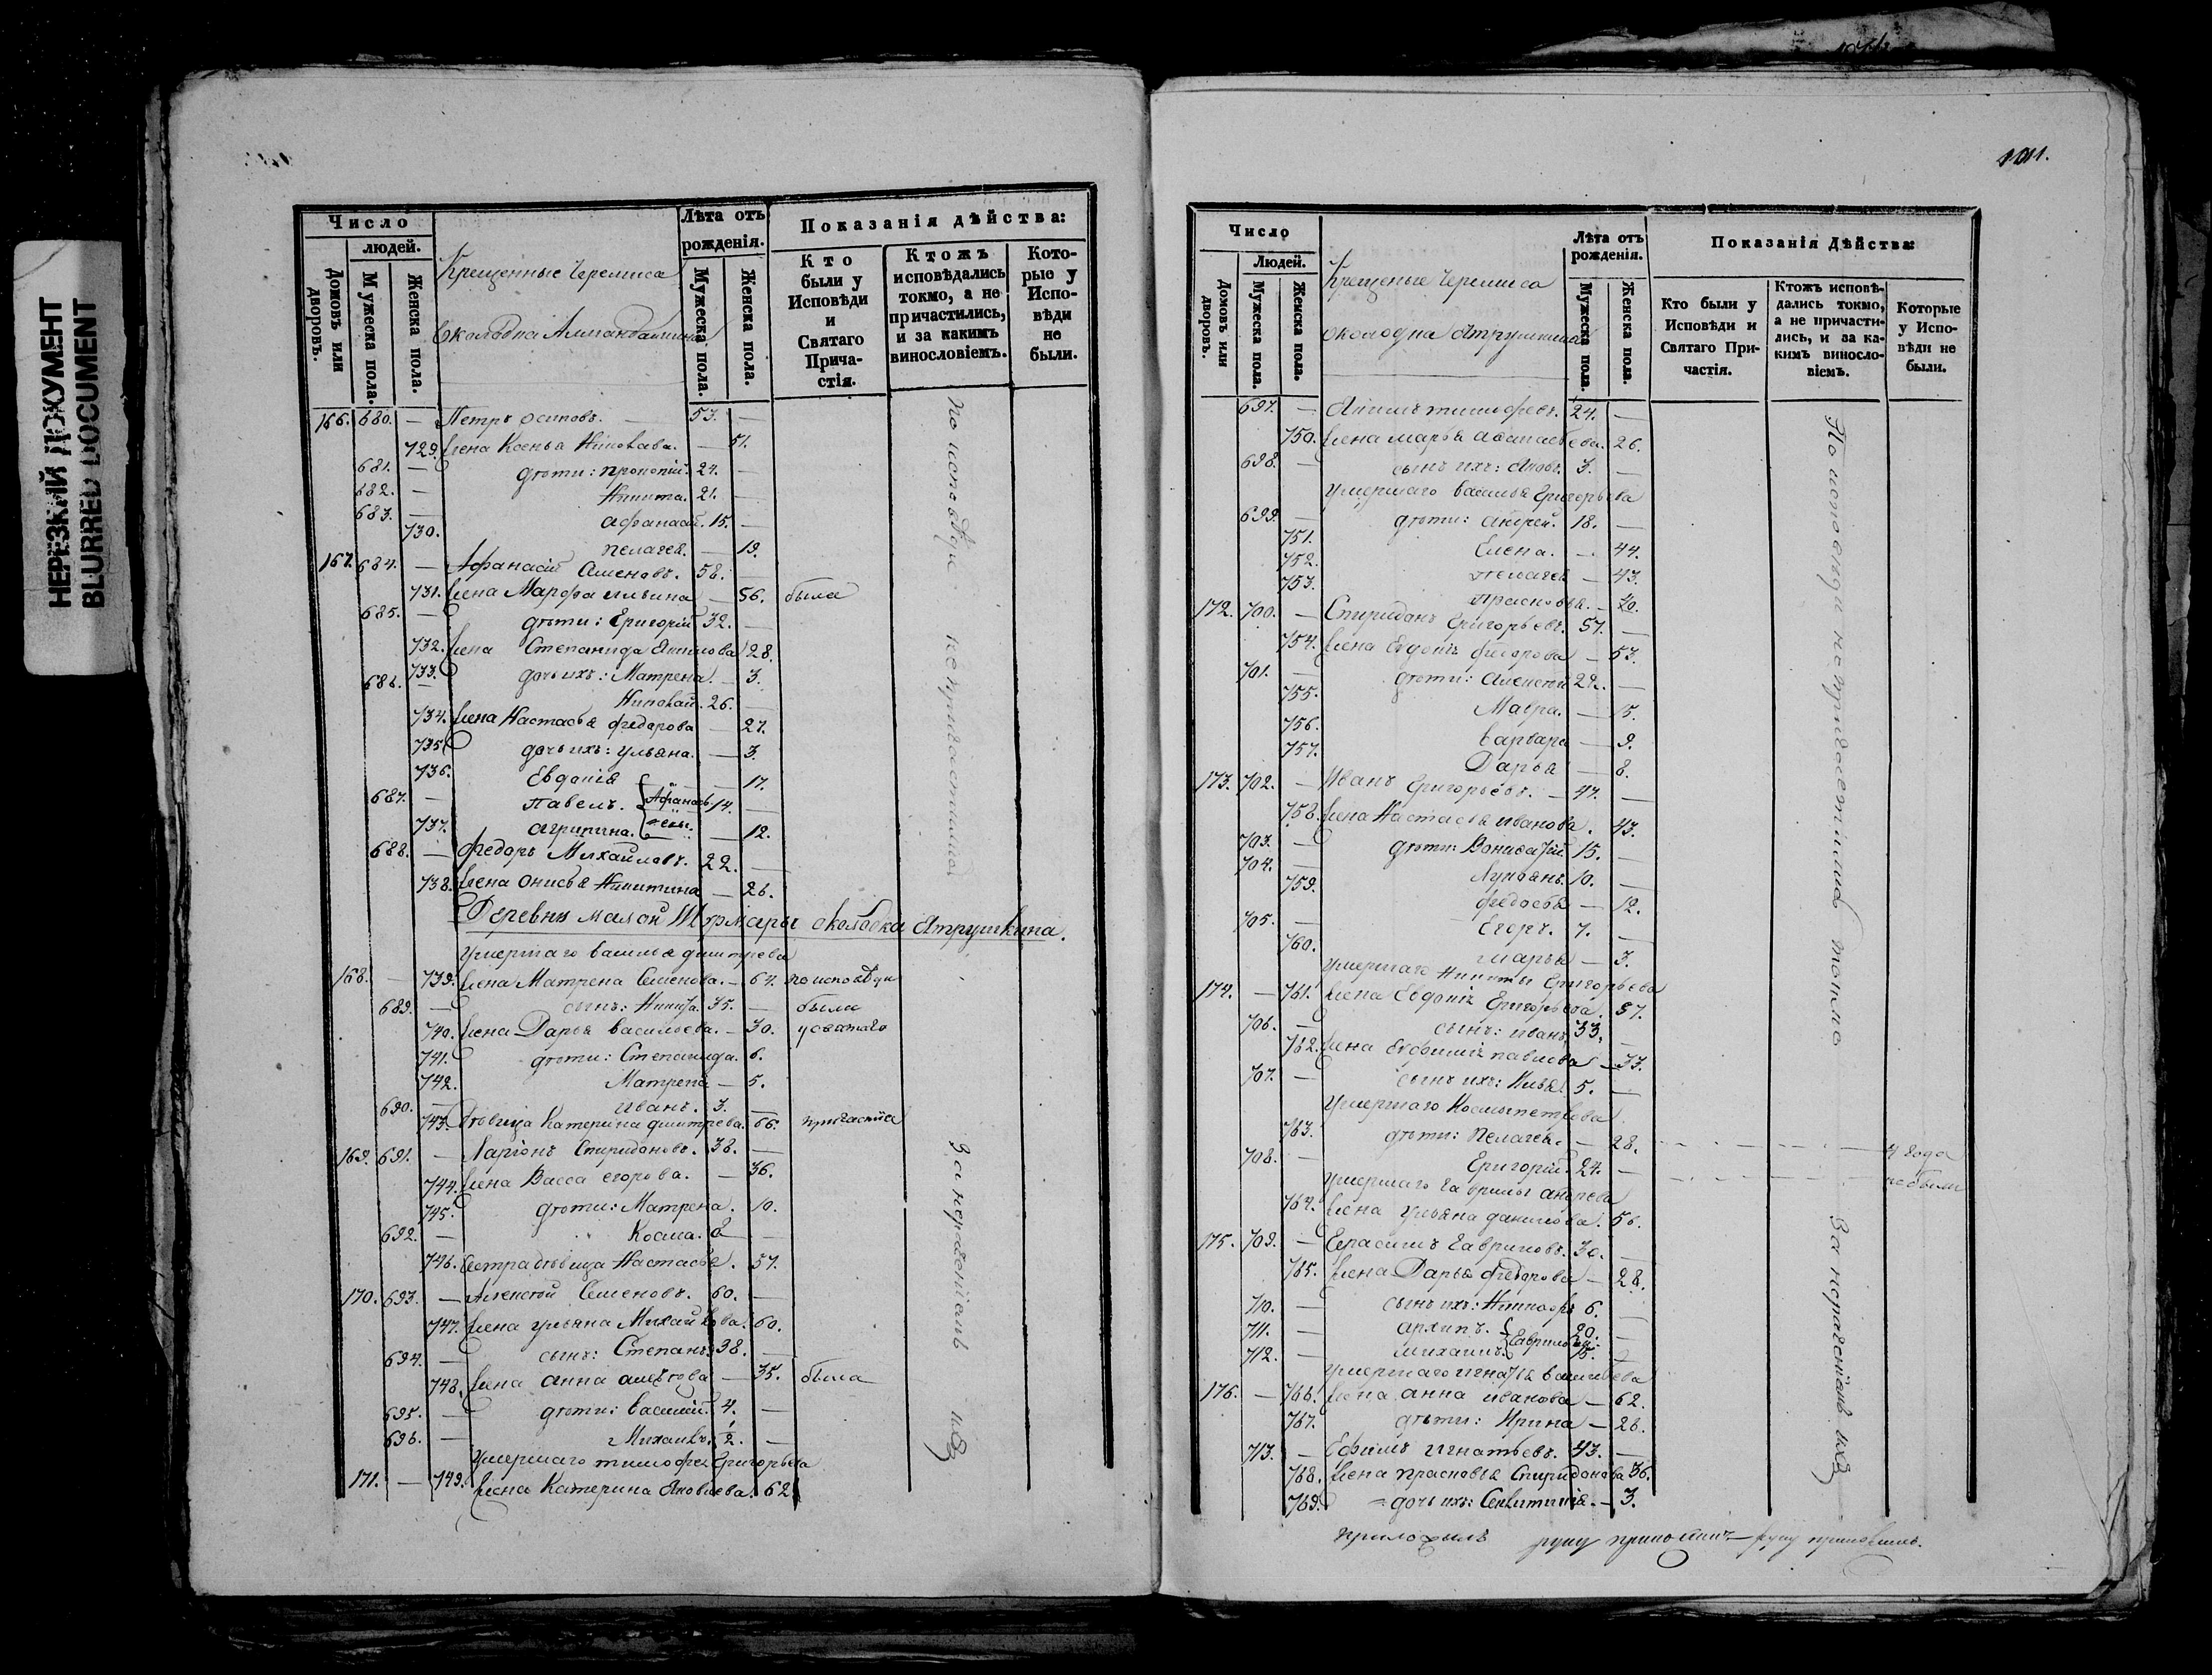 НЕРЕЗКИЙ ДОКУМЕНТ
BLURRED DOCUMENT
Число
людей.
Домовъ или дворовъ.
Мужеска пола.
Женска пола.
Крещенные Черемиса
околодка
Лѣта отъ рожденія.
Мужеска пола.
Женска пола.
Показанія дѣйства:
Кто были у Исповѣди и Святаго Прича-стія.
Ктожъ исповѣдались токмо, а не причастились, и за какимъ винословіемъ.
Кото-рые у Испо-вѣди не были.
166. 680. — Петръ Осиповъ. 53. —
729. Жена Ксенья — 51.
681. — дѣти: Прокопій. 27. —
682. — Никита. 21. —
683. — Афанасій. 15. —
730. Пелагея. — 19.
167. 684. — Афанасій Семеновъ. 58. —
731. Жена Марфа Ильина — 56. была
685. — дѣти: Григорій 32. —
732. Жена Степанида 28.
733. дочь ихъ: Матрена. — 3.
686. — Николай. 26. —
734. Жена Настасья Федорова — 27.
735. дочь ихъ: Ульяна. — 3.
736. Евдокія — 17.
687. — Павелъ. 14. —
737. Агрипина. — 12.
688. — Федоръ Михайловъ. 22. —
738. Жена Онисья Никитина — 26.
Деревни малой Шурмары околодка Ятрушкина.
Умершаго Василья Дмитрева
168. — 739. Жена Матрена Семенова. — 64. по исповѣди
689. — сынъ: Никита. 35. — были
740. Жена Дарья Васильева. — 30. у святаго
741. дѣти: Степанида. 6.
742. Матрена — 5.
690. — Иванъ. 3. —
743. Дѣвица Катерина Дмитрева. 66. причастія
169. 691. — Ларіонъ Спиридоновъ. 38. —
744. Жена Васса Егорова. — 36.
745. дѣти: Матрена. 10.
692. — Косма. 8 —
746. Сестра дѣвица Настасья. 57.
170. 693. — Алексѣй Семеновъ. 60. —
747. Жена Ульяна Михайлова. 60.
694. — сынъ: Степанъ. 38. —
748. Жена Анна — 35. была
695. — дѣти: Василій. 4. —
696. — Михаилъ. 2. —
Умершаго Тимофея Григорьева
171. — 749. Жена Катерина Яковлева. 62.
по исповѣди непричастились
За нераченіемъ ихъ
Число
Людей.
Домовъ или дворовъ.
Мужеска пола.
Женска пола.
Крещеные Черемиса
околодка Ятрушкина
Лѣта отъ рожденія.
Мужеска пола.
Женска пола.
Показанія Дѣйства:
Кто были у Исповѣди и Святаго При-частія.
Ктожъ исповѣ-дались токмо, а не причасти-лись, и за ка-кимъ виносло-віемъ.
Которые у Испо-вѣди не были.
697. — Тимофеевъ. 24. —
750. Жена Марья 26.
698. — сынъ ихъ: Яковъ. 3. —
Умершаго Василья Григорьева
699. — дѣти: Андрей. 18. —
751. Елена. — 44.
752. Пелагея — 43.
753. Прасковья. — 40.
172. 700. — Спиридонъ Григорьевъ. 57. —
754. Жена Евдокія Федорова — 53.
701. — дѣти: Алексѣй 22. —
755. Мавра. — 15.
756. Варвара — 9.
757. Дарья — 8.
173. 702. — Иванъ Григорьевъ. — 47. —
758. Жена Настасья Иванова. 43.
703. — дѣти: 15. —
704. — Лукьянъ. 10. —
759. Федосья — 12.
705. — Егоръ. 7. —
760. Марья — 3.
Умершаго Никиты Григорьева
174. — 761. Жена Евдокія Григорьева. 57.
706. — сынъ: Иванъ. 33. —
762. Жена Ефимія Павлова — 33.
707. — сынъ ихъ: Илья. 5. —
Умершаго Космы Петрова
763. дѣти: Пелагея. — 28. 4 года
708. — Григорій. 24. — небыли
Умершаго Гаврилы Андрева
764. Жена Ульяна Данилова. 56.
175. 709. — Герасимъ Гавриловъ. 30. —
765. Жена Дарья Федорова — 28.
710. — сынъ ихъ: Никифоръ 6. —
711. — Архипъ. 20. —
712. — Михаилъ. 15. —
Умершаго Игнатья Васильева
176. — 766. Жена Анна Иванова — 62.
767. дѣти: Ирина — 26.
713. — Ефимъ Игнатьевъ. 43. —
768. Жена Прасковья Спиридонова 36.
769. дочь ихъ: — 3.
По исповѣди непричастились токмо
За нераченіемъ ихъ
руку приложилъ руку приложилъ.